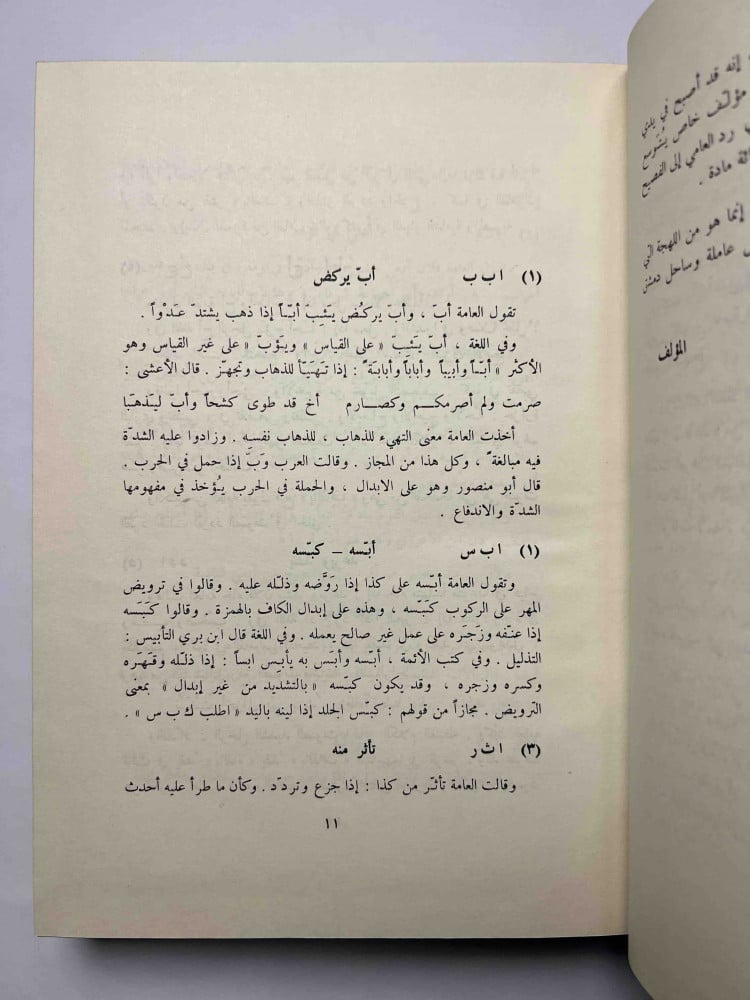 إنه قد أصبح في يدي
مؤلف خاص يُتوسع
رد العامي إلى الفصيح
مادة .
إنما هو من اللهجة التي
عاملة وساحل دمشق
المؤلف
(١) ا ب ب أبّ يركض
تقول العامة أبّ ، وأبّ يركُض يَئِبّ أبّاً إذا ذهب يشتدّ عَدْواً .
وفي اللغة ، أبّ يَئِبّ «على القياس» ويَؤبّ «على غير القياس وهو
الأكثر» أبّاً وأبيباً وأباباً وأبابةً : إذا تَهَيّأ للذهاب وتجهّز . قال الأعشى :
صرمت ولم أصرمكم وكصارم أخ قد طوى كشحاً وأبّ ليَذهبَا
أخذت العامة معنى التهيء للذهاب ، للذهاب نفسه . وزادوا عليه الشدّة
فيه مبالغةً ، وكل هذا من المجاز . وقالت العرب وَبّ إذا حمل في الحرب .
قال أبو منصور وهو على الابدال ، والحملة في الحرب يُؤخذ في مفهومها
الشدّة والاندفاع .
(١) ا ب س أبّسه – كبّسه
وتقول العامة أبّسه على كذا إذا رَوَّضه وذلّله عليه . وقالوا في ترويض
المهر على الركوب كَبّسَه ، وهذه على إبدال الكاف بالهمزة . وقالوا كَبّسَه
إذا عنّفه وزَجَره على عمل غير صالح يعمله . وفي اللغة قال ابن بري التأبيس :
التذليل . وفي كتب الأئمة ، أبّسه وأبَس به يأبِس ابساً : إذا ذلّله وقَهَره
وكسره وزجره ، وقد يكون كبّسه «بالتشديد من غير إبدال» بمعنى
الترويض . مجازاً من قولهم : كبّس الجلد إذا لينه باليد «اطلب ك ب س» .
(٣) ا ث ر تأثر منه
وقالت العامة تأثّر من كذا : إذا جزع وتردّد . وكأن ما طرأ عليه أحدث
١١